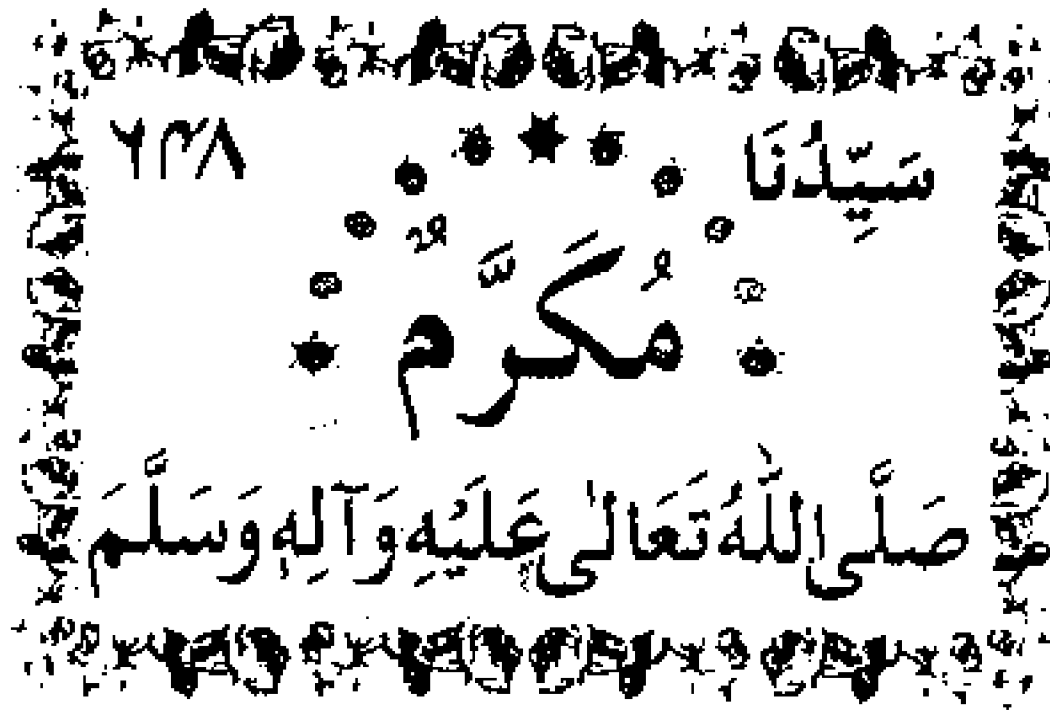 سَيِّدُنَا ۶۳۸
مُكَرَّمٌ
صَلَّى اللّٰهُ تَعَالٰى عَلَيْهِ وَآلِهٖ وَسَلَّمَ